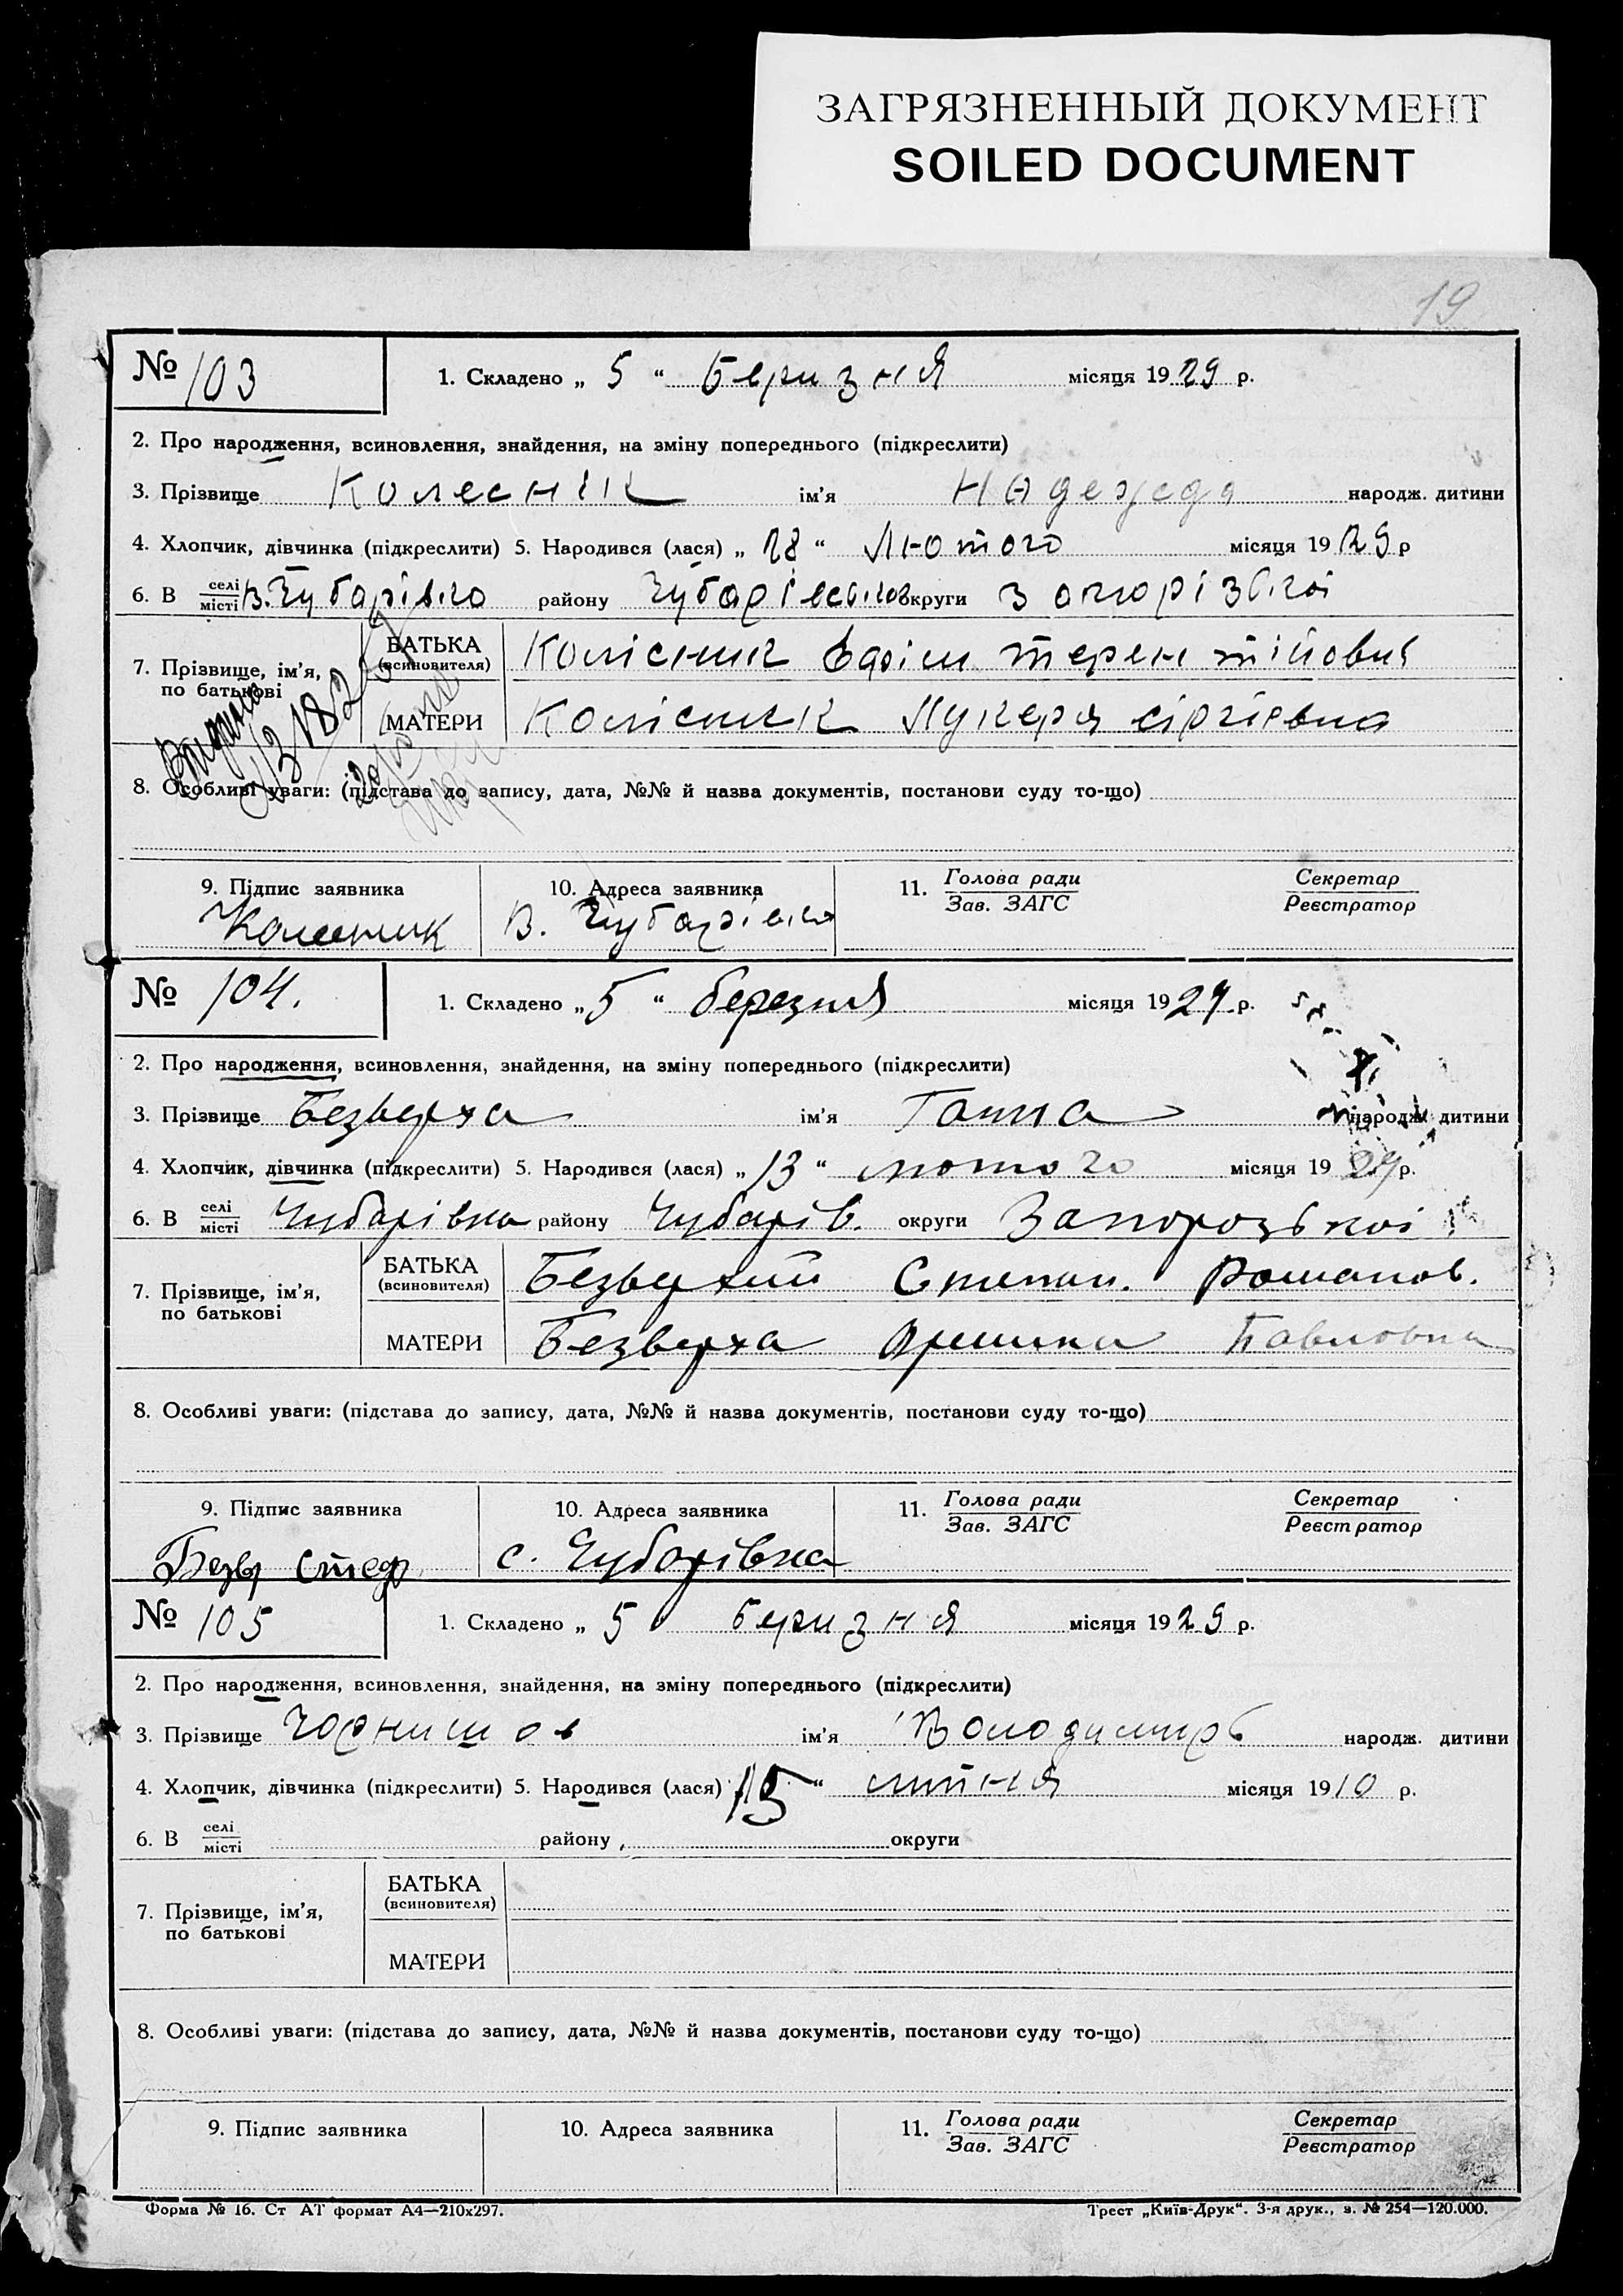 ЗАГРЯЗНЕННЫЙ ДОКУМЕНТ
SOILED DOCUMENT
19
№ 103
1. Складено „ 5 “ Беризня місяця 1929 р.
2. Про народження, всиновлення, знайдення, на зміну попереднього (підкреслити)
3. Прізвище Колеснік ім'я Надежда народж. дитини
4. Хлопчик, дівчинка (підкреслити) 5. Народився (лася) „ 28 “ Лютого місяця 1929 р
6. В селі/місті В. Чубарівка району округи Запорізької
7. Прізвище, ім'я, по батькові
БАТЬКА (всиновителя) Колісник Єфім Терентійович
МАТЕРИ Колісник Лукеря сіргієвна
8. Особливі уваги: (підстава до запису, дата, №№ й назва документів, постанови суду то-що)
9. Підпис заявника
10. Адреса заявника
11. Голова ради / Зав. ЗАГС
Секретар / Реєстратор
В. Чубарівка
№ 104.
1. Складено „ 5 “ березня місяця 1929 р.
2. Про народження, всиновлення, знайдення, на зміну попереднього (підкреслити)
3. Прізвище Безверха ім'я Ганна народж. дитини
4. Хлопчик, дівчинка (підкреслити) 5. Народився (лася) „ 13 “ лютого місяця 1929 р.
6. В селі/місті Чубарівка району Чубарів. округи Запорозької
7. Прізвище, ім'я, по батькові
БАТЬКА (всиновителя) Безверхий Степан. Романов.
МАТЕРИ Безверха Павловна
8. Особливі уваги: (підстава до запису, дата, №№ й назва документів, постанови суду то-що)
9. Підпис заявника
10. Адреса заявника
11. Голова ради / Зав. ЗАГС
Секретар / Реєстратор
с. Чубарівка
№ 105
1. Складено „ 5 беризня місяця 1929 р.
2. Про народження, всиновлення, знайдення, на зміну попереднього (підкреслити)
3. Прізвище Чорнишов ім'я Володимирь народж. дитини
4. Хлопчик, дівчинка (підкреслити) 5. Народився (лася) 15 “ липня місяця 1910 р.
6. В селі/місті району округи
7. Прізвище, ім'я, по батькові
БАТЬКА (всиновителя)
МАТЕРИ
8. Особливі уваги: (підстава до запису, дата, №№ й назва документів, постанови суду то-що)
9. Підпис заявника
10. Адреса заявника
11. Голова ради / Зав. ЗАГС
Секретар / Реєстратор
Форма № 16. Ст АТ формат А4—210х297.
Трест „Київ-Друк“. 3-я друк., з. № 254—120.000.